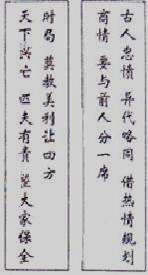 古人忠憤 异代略同 借热情規划
商情 要与前人分一席
天下興亡 匹夫有責 望大家保全
时局 莫教美利让四方